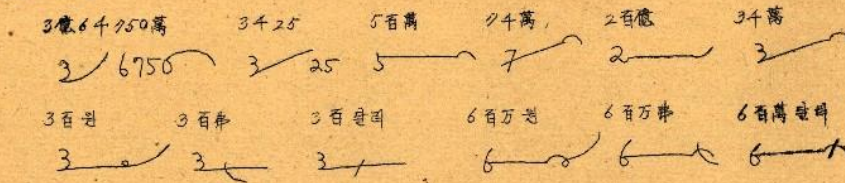 3億6千750萬 3千25 5百萬 7千萬, 2百億 3千萬
3 6750 3 25 5 7 2 3
3百원 3百弗 3百달러 6百万원 6百万弗 6百萬달러
3 3 3 6 6 6